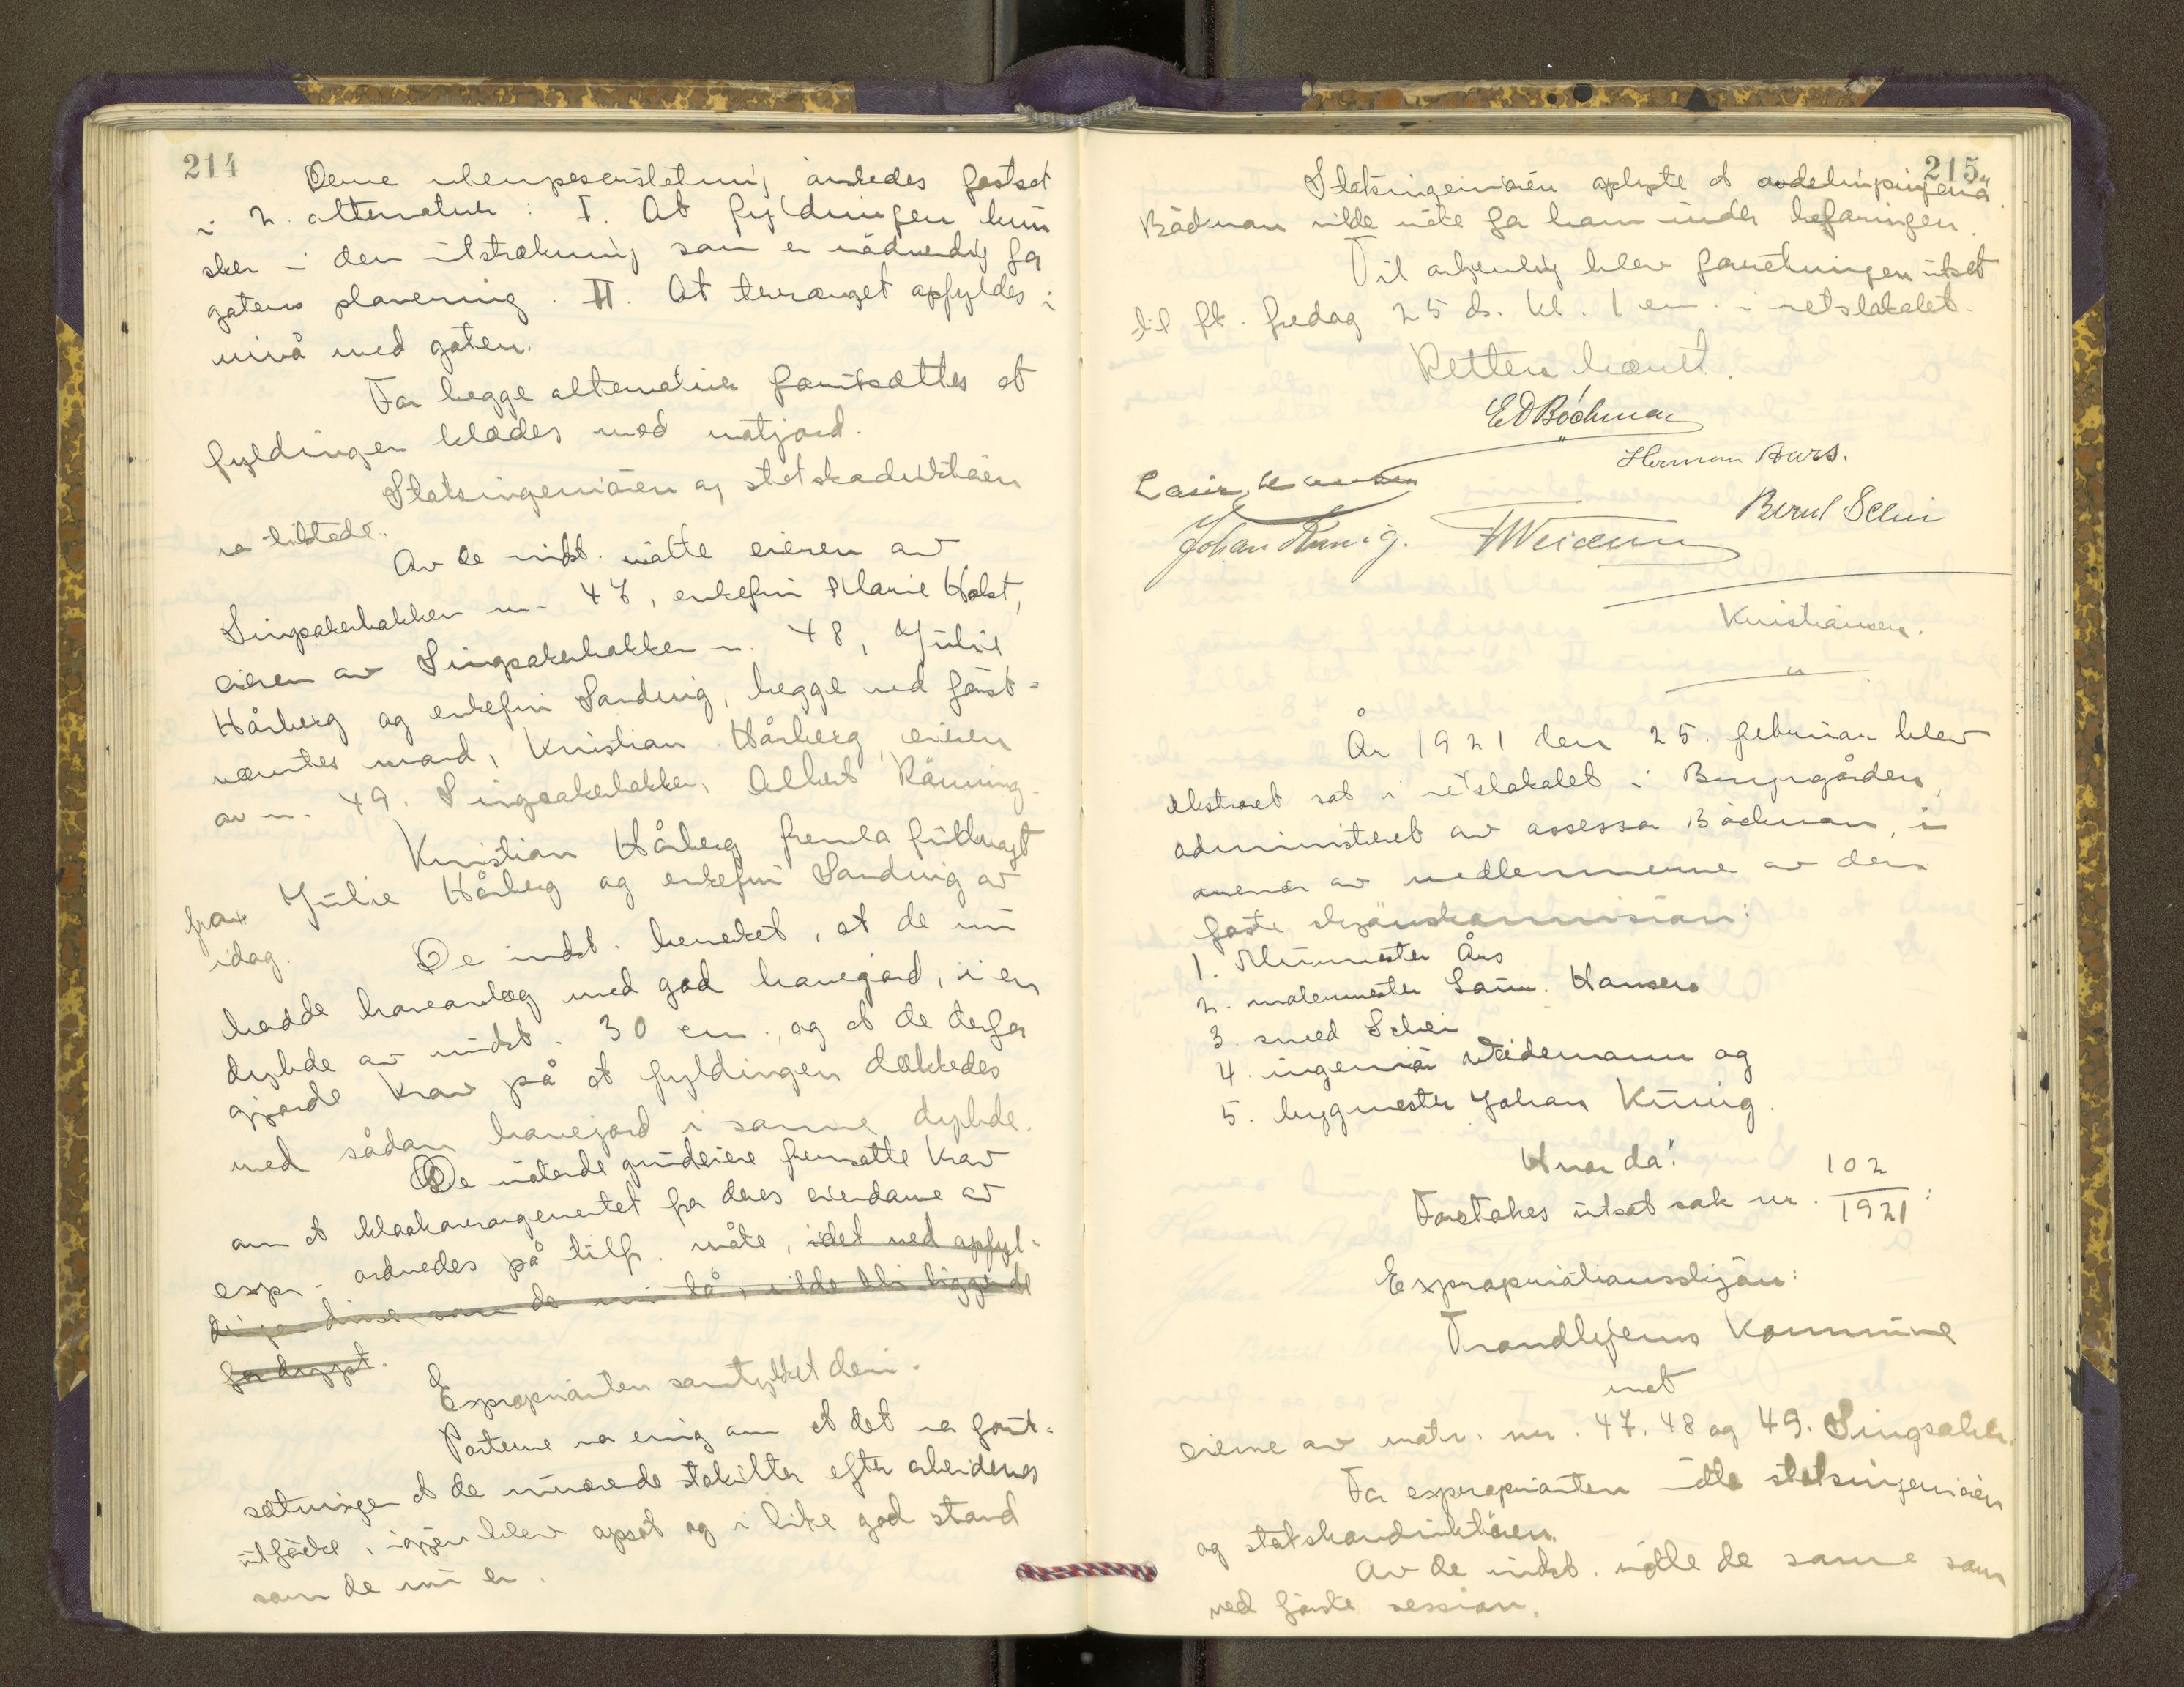 214
Denne ulempeserstatning önskedes fastsat
i 2. alternativer: I. At fyldningen kun
sker i den utstrækning som er nödvendig for
gatens planering. II. At terrænget opfyldes i
nivå med gaten.
For begge alternativer forutsættes at
fyldingen klædes med matjord.
Statsingeniören og statskonduktören
va tilstede.
Av de indst. mötte eieren av
Singsakerbakken nr. 47, enkefru Marie Holst,
eieren av Singsakerbakken nr. 48, Julie
Hårberg og enkefru Sandvig, begge ved först-
nævntes mand, Kristian Hårberg, eieren
av nr. 49. Singsakerbakken, Albert Rönning.
Kristian Hårberg fremla fuldmagt
fra Julie Hårberg og enkefru Sandvig av
idag.
De indst. bemerket, at de nu
hadde haveanlæg med god havejord, i en
dybde av mindst. 30 cm., og at de derfor
gjorde krav på at fyldingen dækkedes
med sådan havejord i samme dybde.
De mötende grundeiere fremsatte krav
om at kloakarrangementet for deres eiendomme av
expr. ordnedes på tilfr. måte, idet ved opfyl-
dingen disse som de nu lå, vilde bli liggende
for dypt.
Expropriaten samtykket deri.
Parterne va enig om at det va forut-
sætningen at de nuværende stakitter efter arbeidenes
utförelse, igjen blev opsat og i like god stand
som de nu er.
215.
Statsingeniören oplyste at avdelingsingeniör
Bödman vilde möte for ham under befaringen.
Til avhjemling blev forretningen utsat
til fk. fredag 25 ds. kl. 1 em. i retslokalet.
Retten hævet.
ED Böckman
Herman Aars.
Laur. Hansen
Bernt Schei
Johan Kunig.
HWeidemann
Kristiansen.
År 1921 den 25. februar blev
ekstraret sat i retslokalet i Brynsgården,
administreret av assessor Böckman, i
overvær av medlemmerne av den
faste skjönskommission:
1. Murmester Års
2. malermester Laur. Hansen
3. smed Schei
4. ingeniör Weidemann og
5. bygmester Johan Kunig.
Hvorda:
Foretokes utsat sak nr. 102/1921:
Expropriationsskjön:
Trondhjems Kommune
mot
eierne av matr. nr. 47. 48 og 49. Singsakerb.
For expropriaten mötte statsingeniören
og statskonduktören.
Av de indst. mötte de samme som
ved förste session.